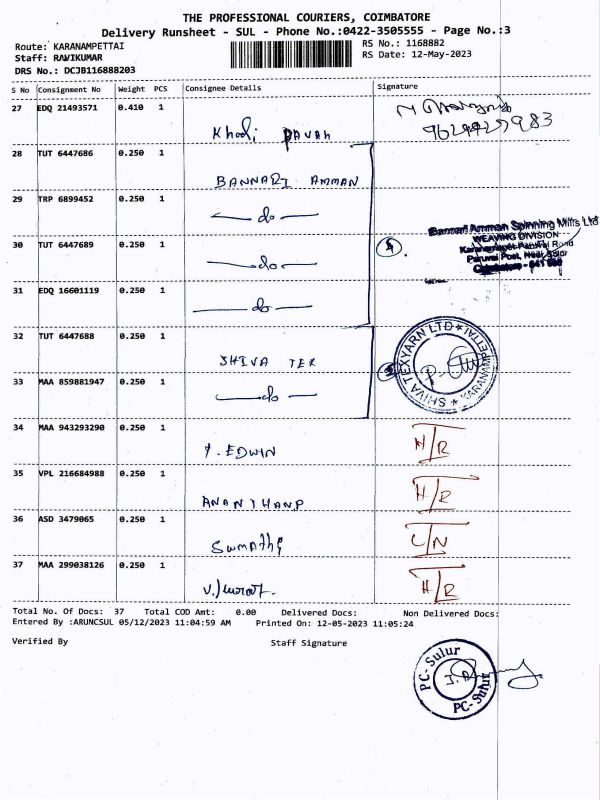 THE PROFESSIONAL COURIERS, COIMBATORE
Delivery Runsheet - SUL - Phone No.:0422-3505555 - Page No.:3
Route: KARANAMPETTAI
RS No.: 1168882
Staff: RAVIKUMAR
RS Date: 12-May-2023
DRS No.: DCJB116888203
S No Consignment No Weight PCS Consignee Details Signature
27 EDQ 21493571 0.410 1
Khadi Pavan
28 TUT 6447686 0.250 1
BANNARI AMMAN
29 TRP 6899452 0.250 1
do
30 TUT 6447689 0.250 1
do
Bannari Amman Spinning Mills Ltd
WEAVING DIVISION
31 EDQ 16601119 0.250 1
do
32 TUT 6447688 0.250 1
SHIVA TEX
SHIVA TEXYARN LTD ★ KARANAMPETTAI ★
33 MAA 859881947 0.250 1
do
34 MAA 943293290 0.250 1
EDWIN
H/R
35 VPL 216684988 0.250 1
ANANTHAN P
H/R
36 ASD 3479065 0.250 1
Sumathi
L/N
37 MAA 299038126 0.250 1
H/R
Total No. Of Docs: 37 Total COD Amt: 0.00 Delivered Docs: Non Delivered Docs:
Entered By :ARUNCSUL 05/12/2023 11:04:59 AM Printed On: 12-05-2023 11:05:24
Verified By Staff Signature
PC-Sulur
PC-Sulur